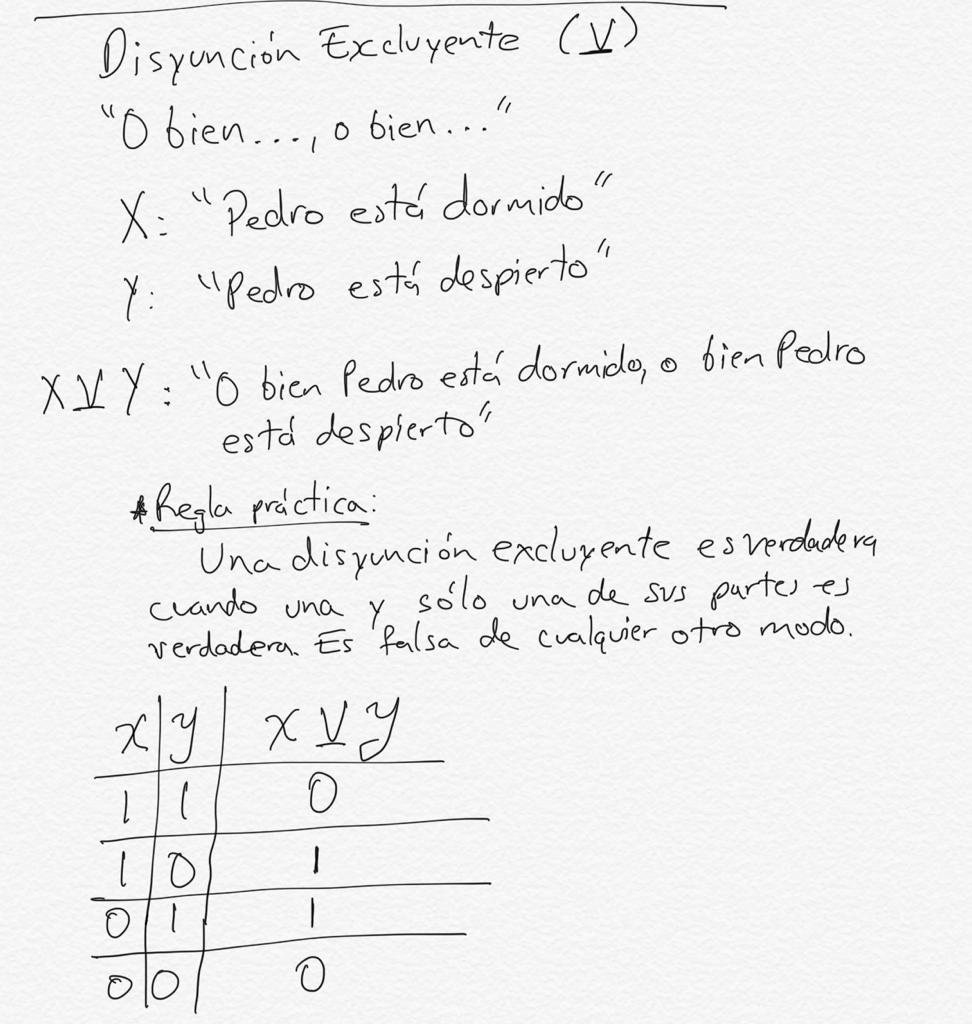 Disyunción Excluyente (⊻)
"O bien..., o bien..."
X: "Pedro está dormido"
Y: "Pedro está despierto"
X ⊻ Y: "O bien Pedro está dormido, o bien Pedro
está despierto"
*Regla práctica:
Una disyunción excluyente es verdadera
cuando una y sólo una de sus partes es
verdadera. Es falsa de cualquier otro modo.
x y x ⊻ y
1 1 0
1 0 1
0 1 1
0 0 0